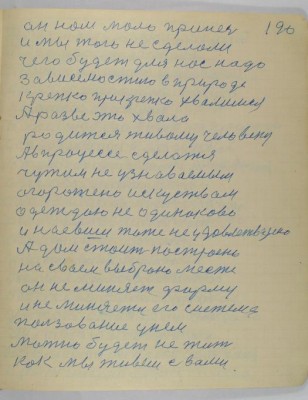 он нам мало принеѕ 196
и мы того не сделали
чего будет для нас надо
Зависемостию в природе
Крепко прикрепко хвалимся
А разве это хвала
родится живому человеку
А в процессе сделатся
чужим не узнаваемым
огорожено искуствам
одеждаю не одинаково
и наевши тоже не удовлетворено
А дом стоит построень
на своем выброно месте
он не миняет форму
и не миняете его система
ползование у нем
можно будет не жит
как мы живем с вами.